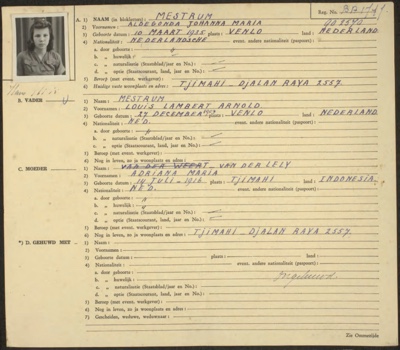 A. 1) NAAM (in blokletters): MESTRUM Reg. No.
2) Voornamen: ALDEGONDA JOHANNA MARIA
3) Geboorte datum: 10 MAART 1935 plaats: VENLO land: NEDERLAND
4) Nationaliteit: NEDERLANDSCHE event. andere nationaliteit (paspoort):
a. door geboorte:
b. „ huwelijk:
c. „ naturalisatie (Staatsblad/jaar en No.):
d. „ optie (Staatscourant, land, jaar en No.):
5) Beroep (met event. werkgever):
6) Huidige vaste woonplaats en adres: TJIMAHI - DJALAN RAYA 2557.
B. VADER 1) Naam: MESTRUM
2) Voornamen: LOUIS LAMBERT ARNOLD
3) Geboorte datum: 27 DECEMBER plaats: VENLO land: NEDERLAND
4) Nationaliteit: NED. event. andere nationaliteit (paspoort):
a. door geboorte:
b. „ huwelijk:
c. „ naturalisatie (Staatsblad/jaar en No.):
d. „ optie (Staatscourant, land, jaar en No.):
5) Beroep (met event. werkgever):
6) Nog in leven, zo ja woonplaats en adres:
C. MOEDER 1) Naam: VAN DER LELY
2) Voornamen: ADRIANA MARIA
3) Geboorte datum: 14 JULI 1916 plaats: TJIMAHI land: INDONESIA.
4) Nationaliteit: NED. event. andere nationaliteit (paspoort):
a. door geboorte:
b. „ huwelijk:
c. „ naturalisatie (Staatsblad/jaar en No.):
d. „ optie (Staatscourant, land, jaar en No.):
5) Beroep (met event. werkgever):
6) Nog in leven, zo ja woonplaats en adres: TJIMAHI - DJALAN RAYA 2557.
*) D. GEHUWD MET 1) Naam:
2) Voornamen:
3) Geboorte datum: plaats: land:
4) Nationaliteit: event. andere nationaliteit (paspoort):
a. door geboorte:
b. „ huwelijk:
c. „ naturalisatie (Staatsblad/jaar en No.):
d. „ optie (Staatscourant, land, jaar en No.):
5) Beroep (met event. werkgever):
6) Nog in leven, zo ja, woonplaats en adres:
7) Gescheiden, weduwe, weduwnaar:
Zie Ommezijde